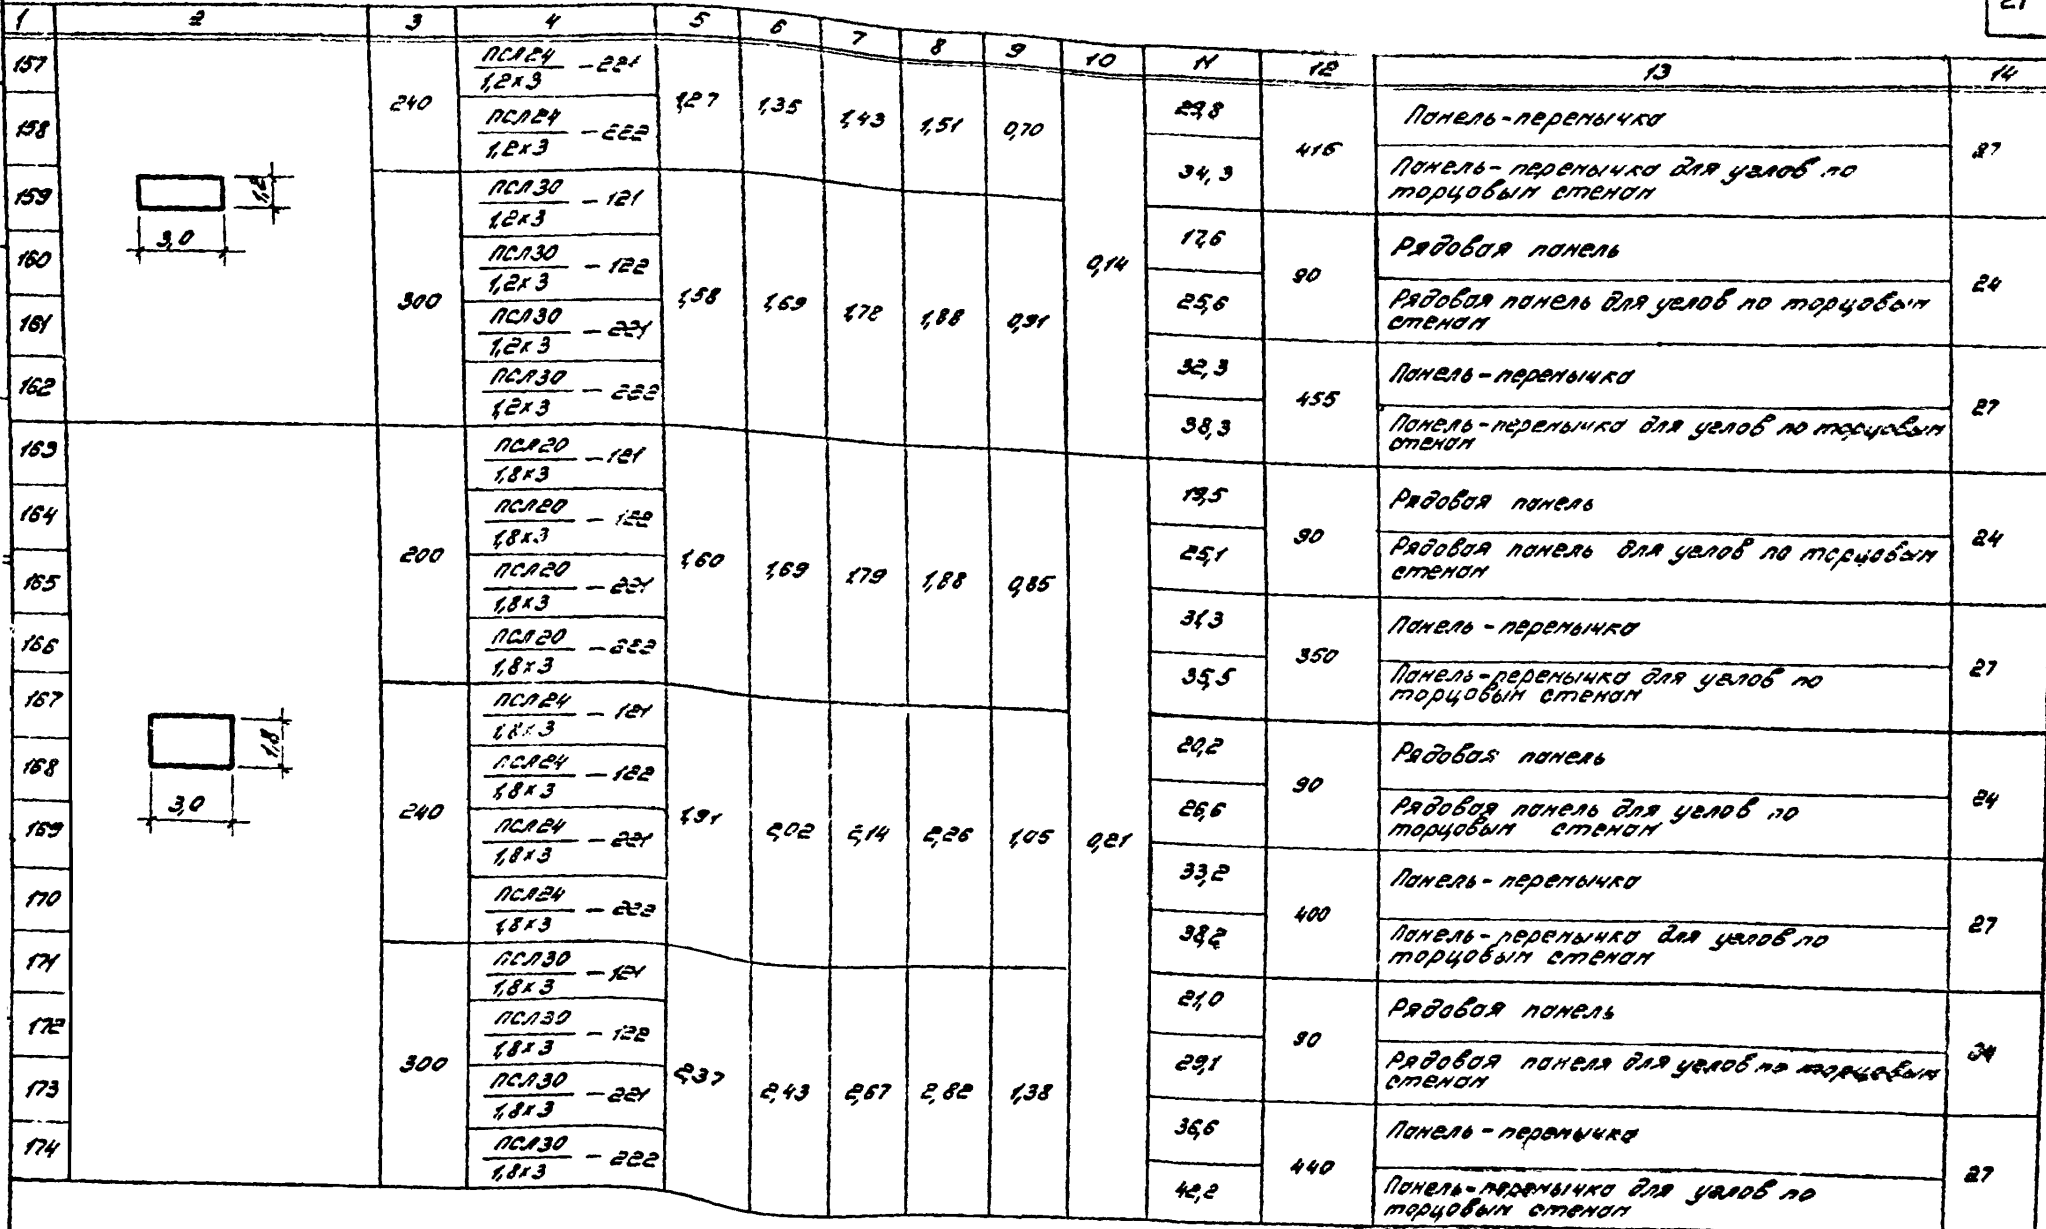 21
1 2 3 4 5 6 7 8 9 10 11 12 13 14
157 240 ПСЛ24/1,2х3 - 221 1,27 1,35 1,43 1,51 0,70 0,14 29,8 416 Панель-перемычка 27
158 ПСЛ24/1,2х3 - 222 34,3 Панель-перемычка для углов по
торцовым стенам
1,2
3,0
159 300 ПСЛ30/1,2х3 - 121 1,58 1,69 1,78 1,88 0,91 17,6 90 Рядовая панель 24
160 ПСЛ30/1,2х3 - 122 25,6 Рядовая панель для углов по торцовым
стенам
161 ПСЛ30/1,2х3 - 221 32,3 455 Панель-перемычка 27
162 ПСЛ30/1,2х3 - 222 38,3 Панель-перемычка для углов по торцовым
стенам
163 200 ПСЛ20/1,8х3 - 121 1,60 1,69 1,79 1,88 0,85 0,21 19,5 90 Рядовая панель 24
164 ПСЛ20/1,8х3 - 122 25,1 Рядовая панель для углов по торцовым
стенам
165 ПСЛ20/1,8х3 - 221 31,3 350 Панель-перемычка 27
166 ПСЛ20/1,8х3 - 222 35,5 Панель-перемычка для углов по
торцовым стенам
1,8
3,0
167 240 ПСЛ24/1,8х3 - 121 1,91 2,02 2,14 2,26 1,05 20,2 90 Рядовая панель 24
168 ПСЛ24/1,8х3 - 122 26,6 Рядовая панель для углов по
торцовым стенам
169 ПСЛ24/1,8х3 - 221 33,2 400 Панель-перемычка 27
170 ПСЛ24/1,8х3 - 222 38,2 Панель-перемычка для углов по
торцовым стенам
171 300 ПСЛ30/1,8х3 - 121 2,37 2,43 2,67 2,82 1,38 21,0 90 Рядовая панель 24
172 ПСЛ30/1,8х3 - 122 29,1 Рядовая панеля для углов по торцовым
стенам
173 ПСЛ30/1,8х3 - 221 36,6 440 Панель-перемычка 27
174 ПСЛ30/1,8х3 - 222 42,2 Панель-перемычка для углов по
торцовым стенам